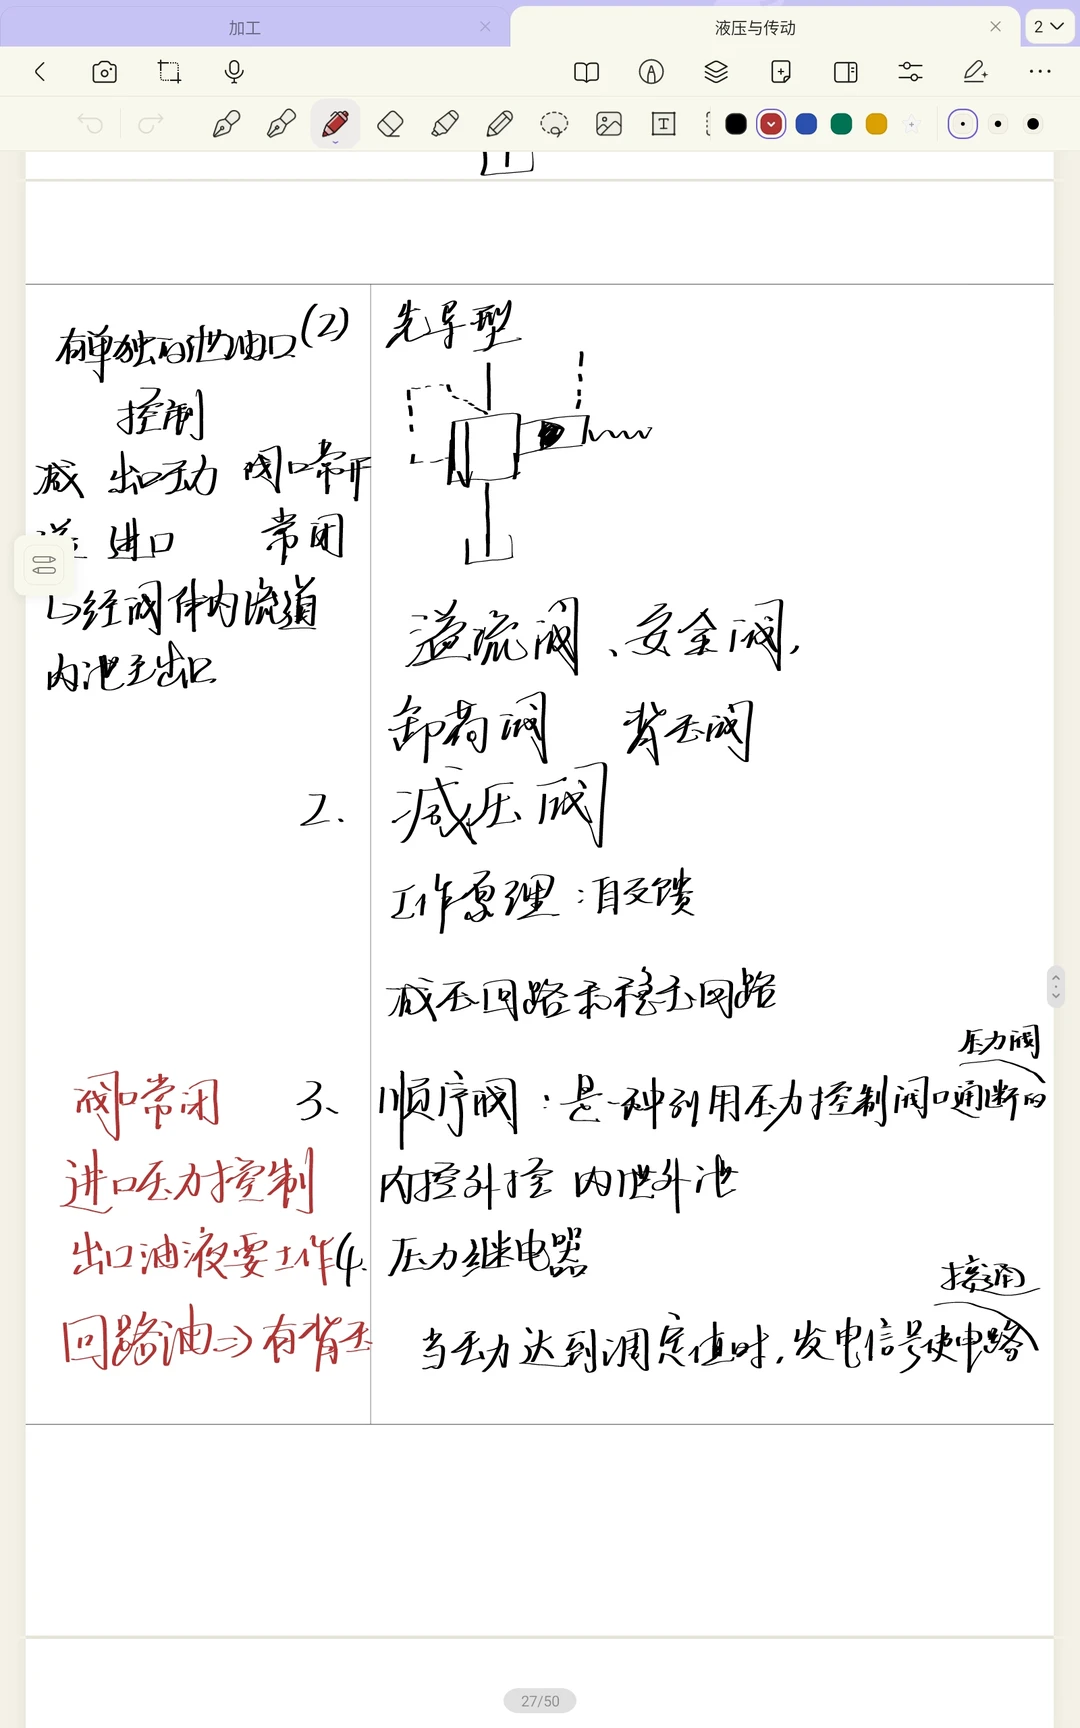 加工
液压与传动
2
有单独的泄油口
控制
减 出口压力 阀口常开
溢 进口 常闭
↳经阀体内流道
内泄至出口
(2) 先导型
溢流阀、安全阀,
卸荷阀 背压阀
2. 减压阀
工作原理:自反馈
减压回路和稳压回路
压力阀
3、顺序阀:是一种利用压力控制阀口通断的
内控外控 内泄外泄
阀口常闭
进口压力控制
出口油液要工作
回路油⇒有背压
4. 压力继电器
接通
当压力达到调定值时,发电信号使电路
27/50